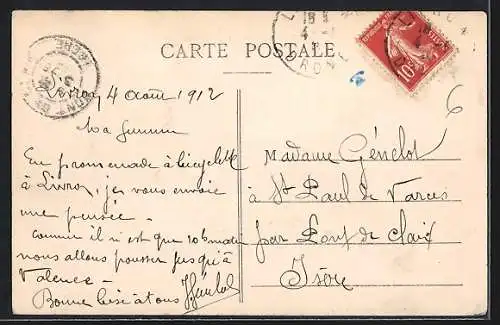 CARTE POSTALE
Livron, 4 Août 1912
En promenade à bicyclette
à Livron, je vous envoie
une pensée -
comme il n'est que 10h matin
nous allons pousser jusqu'à
Valence -
Bonne bise à tous
Madame Génelot
à St Paul de Varces
par Pont de Claix
Isère
10c
6